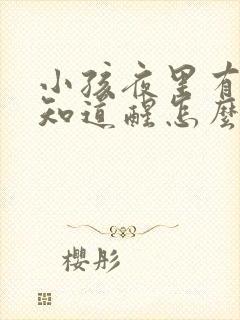 小孩夜里有
知道醒怎麼
樱彤